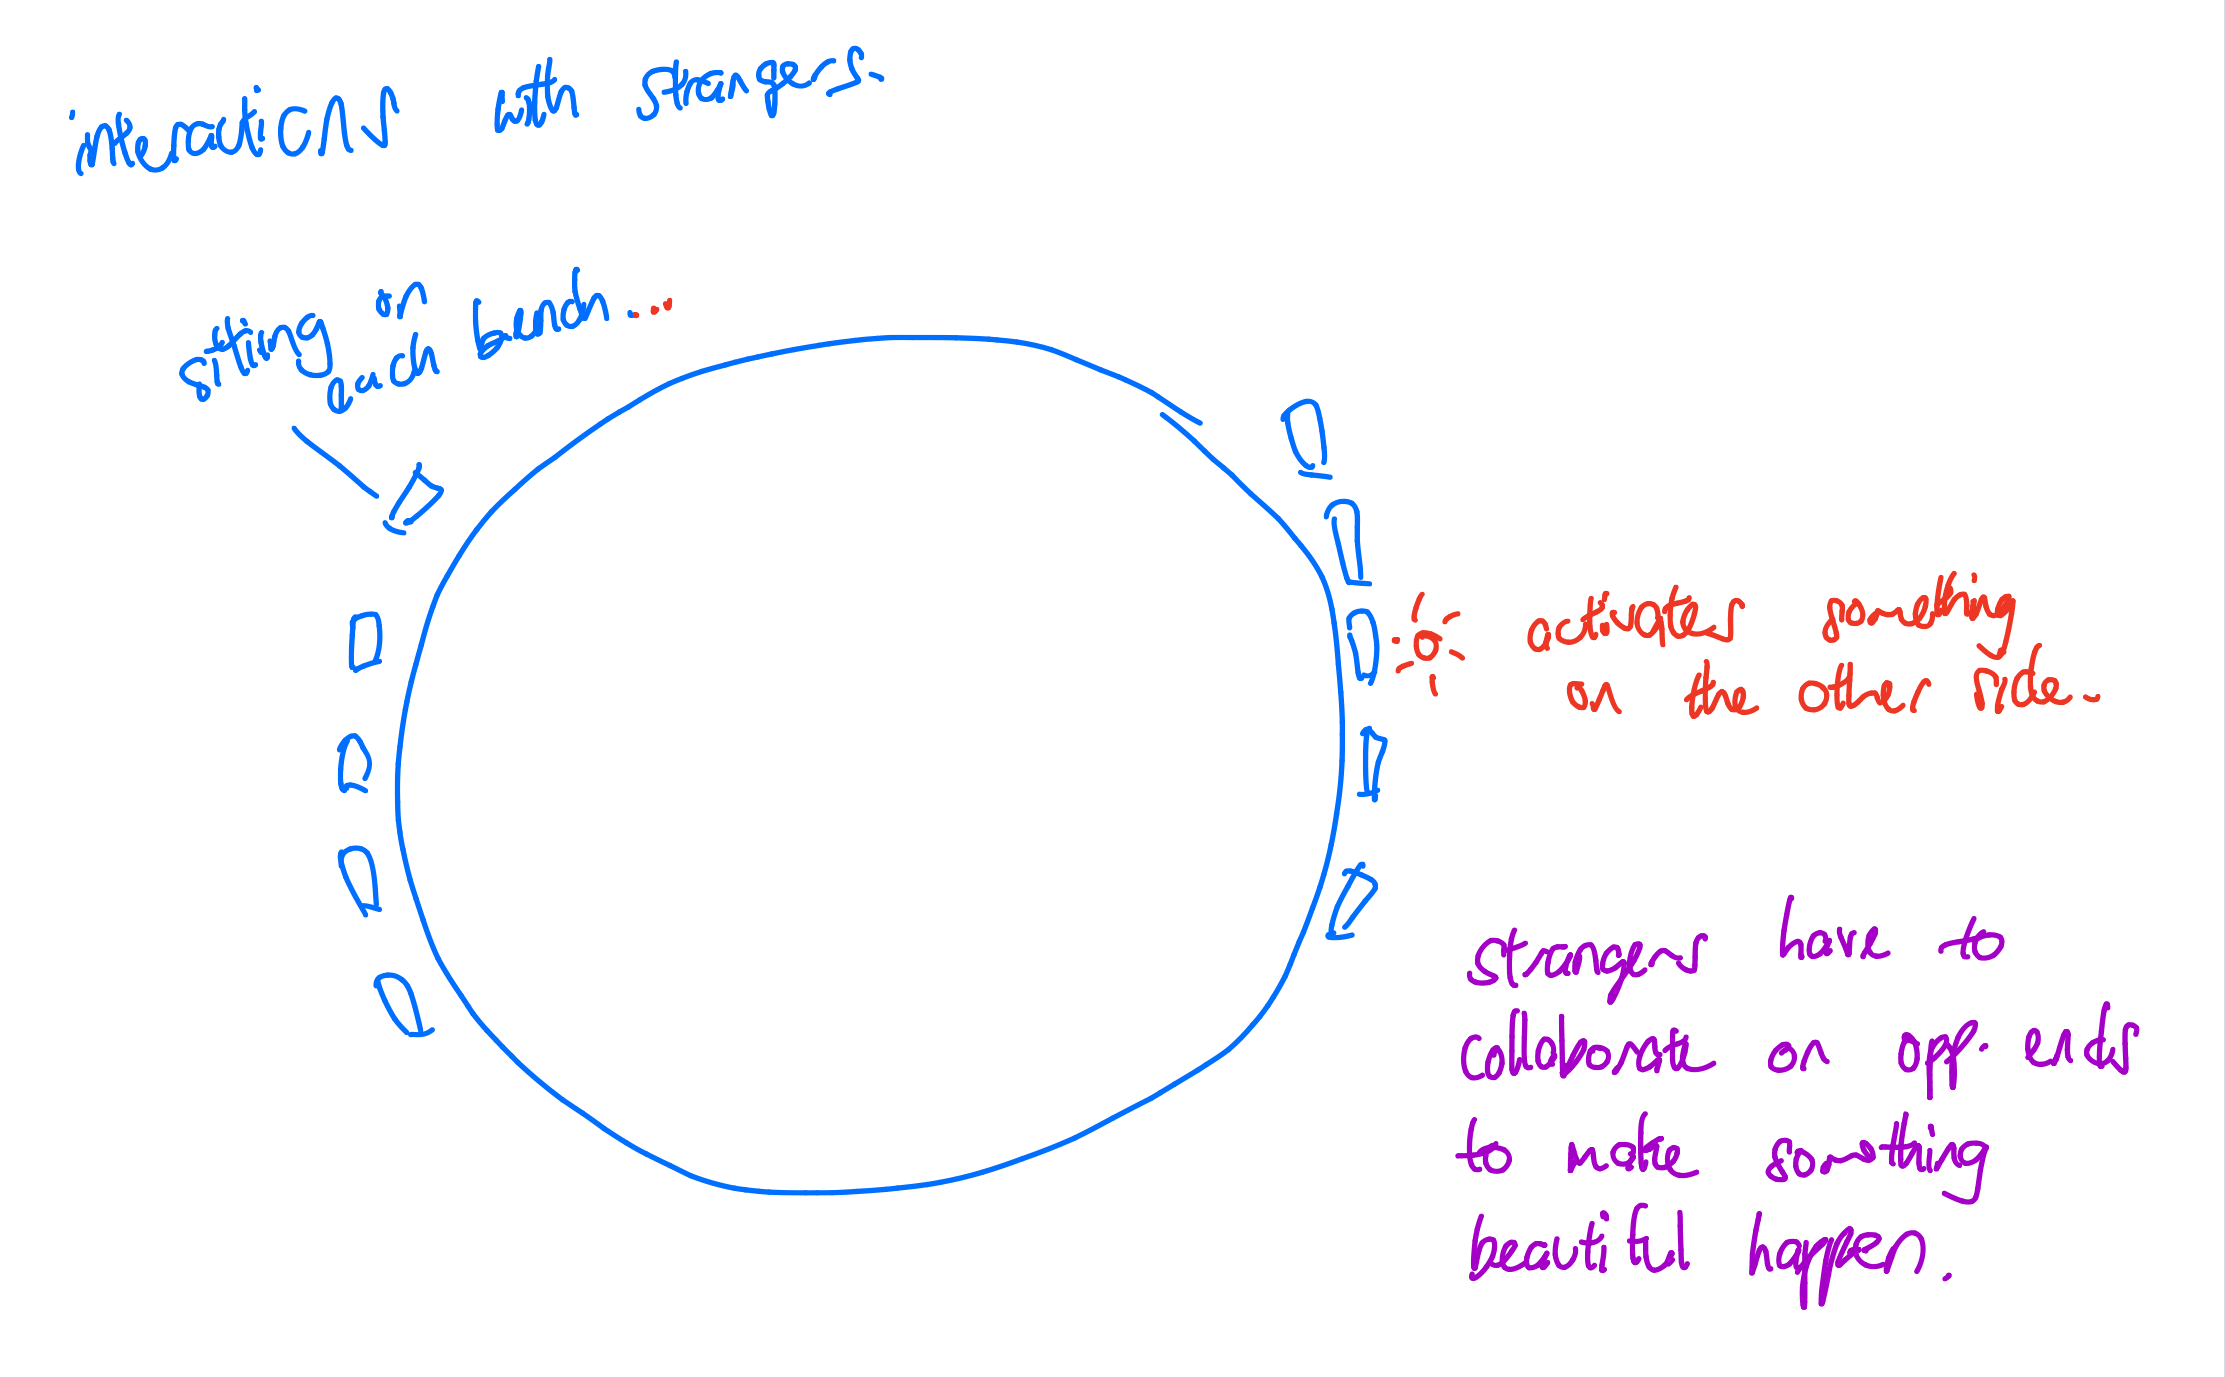 interactions with strangers.
sitting on
each bench...
activates something
on the other side.
strangers have to
collaborate on opp. ends
to make something
beautiful happen.